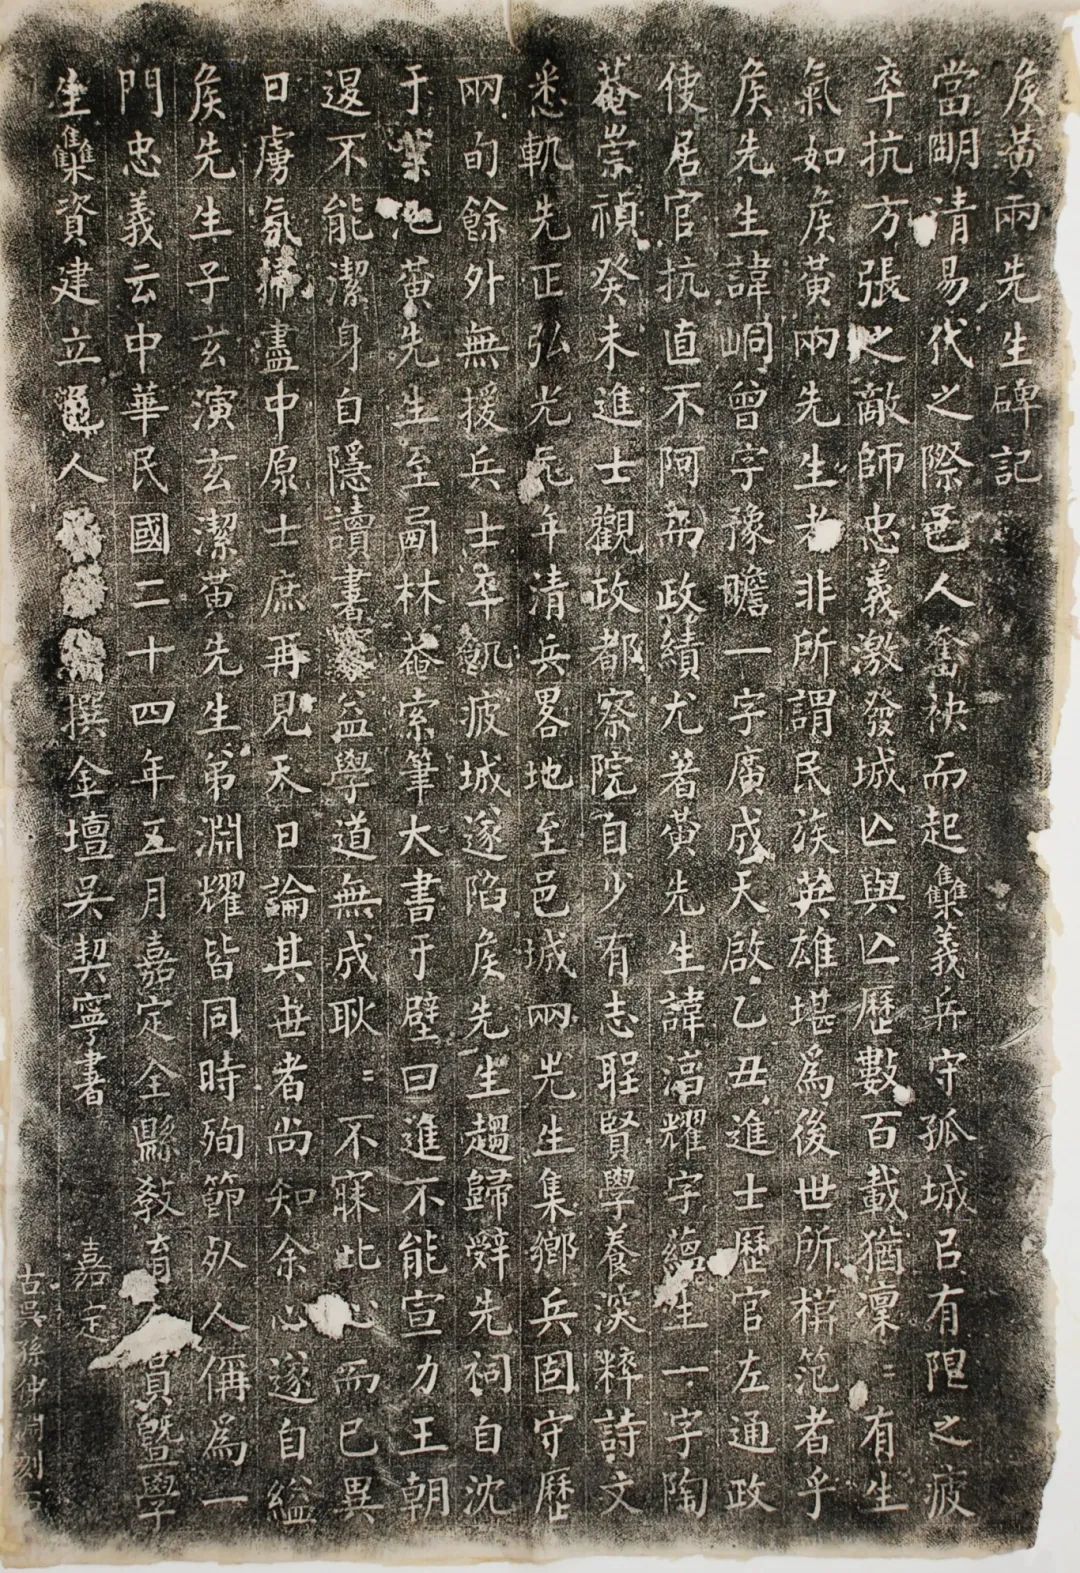 矦黃兩先生碑記
當明清易代之際邑人奮袂而起雧義兵守孤城㠯有限之疲
卒抗方張之敵師忠義激發城亾與亾歷數百載猶凜〻有生
氣如矦黃兩先生者非所謂民族英雄堪爲後世所楷范者乎
矦先生諱峒曾字豫瞻一字廣成天啟乙丑進士歷官左通政
使居官抗直不阿而政績尤著黃先生諱淳耀字蘊生一字陶
菴崇禎癸未進士觀政都察院自少有志聖賢學養深粹詩文
悉軌先正弘光元年清兵畧地至邑城兩先生集鄉兵固守歷
兩旬餘外無援兵士卒飢疲城遂陷矦先生趨歸辭先祠自沈
于葉池黃先生至西林菴索筆大書于壁曰進不能宣力王朝
退不能潔身自隱讀書寡益學道無成耿〻不寐此心而已異
日虜氛掃盡中原士庶再見天日論其世者尚知余心遂自縊
矦先生子玄演玄潔黃先生弟淵耀皆同時殉節邑人偁爲一
門忠義云中華民國二十四年五月嘉定全縣敎育人員曁學
生雧資建立邑人 撰金壇吳契寧書
嘉定
古吳孫仲淵刻石